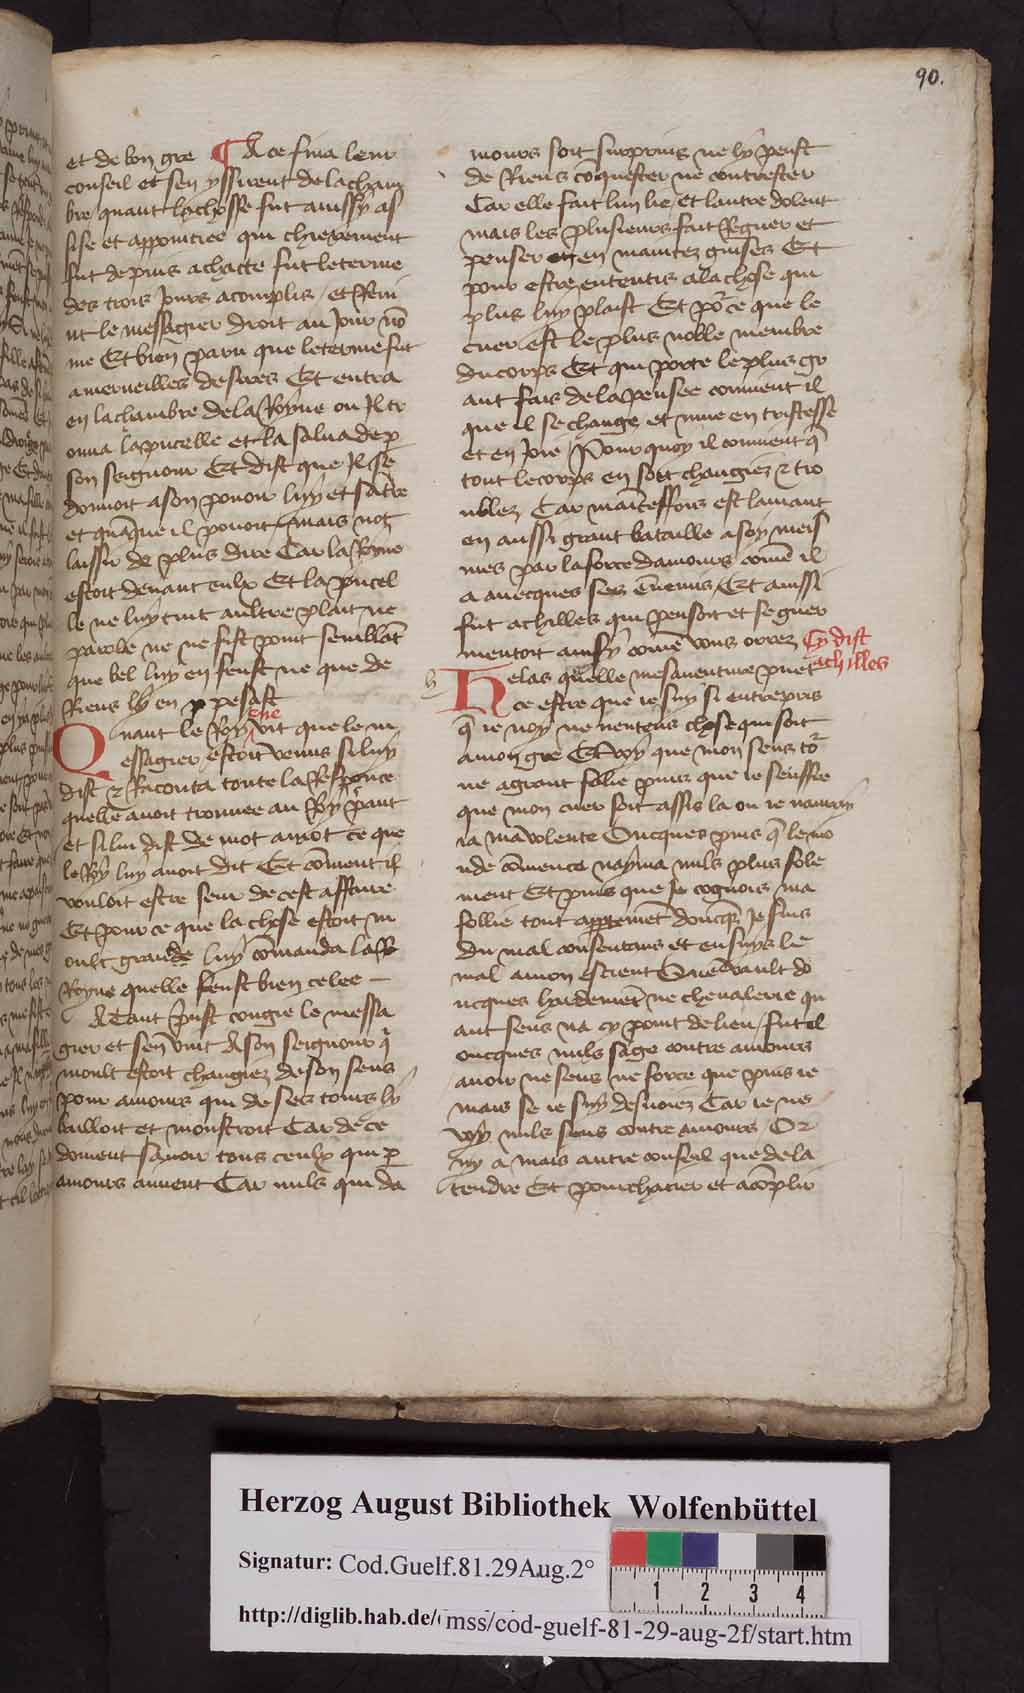 90.
et de bon gre ¶ A ce fina leur
conseil et sen yssirent de la cham
bre quant la chosse fut aussy as
sise et appointiee qui chierement
fut depuis achatte fut le terme
des trois Jours acomplis / et Reui
nt le messagier droit au Jour nō
me Et bien paru que le terme fut
a merueilles desires Et entra
en la chambre de la Royne ou Il tr
ouua la pucelle et la salua de p
son seignour Et dist que Il se
donnoit a son pouoir luy et sa tre
et quāque il pouoit mais not
laissir de plus dire Car la Royne
estoit deuant eulx Et la pucel
le ne luy tint aultre plait ne
parolle ne ne fist point semblāt
que bel luy en feust ne que de
Riens ly en pesast
Quant le Roy ne vit que le m
essagier estoit venus si luy
dist & Raconta toute la Responce
quelle auoit trouuee au Roy pāant
et si lui dist de mot amot ce que
le Roy luy auoit dit Et cōment il
vouloit estre seur de cest affaire
Et pour ce que la chose estoit m
oult grande luy cōmanda la
Royne quelle feust bien celee
A Tant prist congie le messa
gier et sen vint A son seignour q
moult estoit changiez de son sens
pour amours qui de ses tours ly
bailloit et monstroit Car de ce
doiuent sauoir tous ceulx qui p
amours aiment Car nuls qui da
mours soit surprins ne ly peust
de Riens cōquester ne contrester
Car elle fait lun lie / et lautre dolent
mais les plusieurs fait seguer et
penser en maintez guises Et
pour estre ententis a la chose qui
plus luy plaist Et pō ce que le
cuer est le plus noble membre
du corps Et qui porte le plus gr
ant fais de la pensee conuient il
que il se change et mue en tristesse
et en Joie / Pour quoy il conuient q
tout le corps en soit changiez & tro
ublez Car maīteffois est lamant
en aussi grant bataille a soy meis
mes par la force damours cōme il
a auecques ses ēnemis / Et aussi
fut achilles qui pensoit et se guer
mentoit ainsy cōme vous orrez Cy dist
achilles
h
Helas quelle mesauenture puet
ce estre que ie suy si entrepris
q ie noy ne nentens chose qui soit
a mon gre Et voy que mon sens to
ne a grant folie puiz que ie seuffre
que mon cuer soit assis la ou ie nauray
ia ma volente Oncques puis q le mo
nde cōmenca nayma nuls plus fole
ment Et puis que Je cognois ma
follie tout appertemēt doncqz Je suis
du mal consentans et ensuys le
mal a mon escient Que vault do
ncques hardemēt ne cheualerie qu
ant sens na cy point de lieu / fut il
oncques nuls sage contre amours
auoir ne sens ne force que puis ie
mais se ie suy desuoiez Car ie ne
voy nuls sens contre amours Or
ny a mais autre conseil que de la
tendre Et pourchacier et acōplir
Herzog August Bibliothek Wolfenbüttel
Signatur: Cod.Guelf.81.29Aug.2°
1 2 3 4
http://diglib.hab.de/mss/cod-guelf-81-29-aug-2f/start.htm